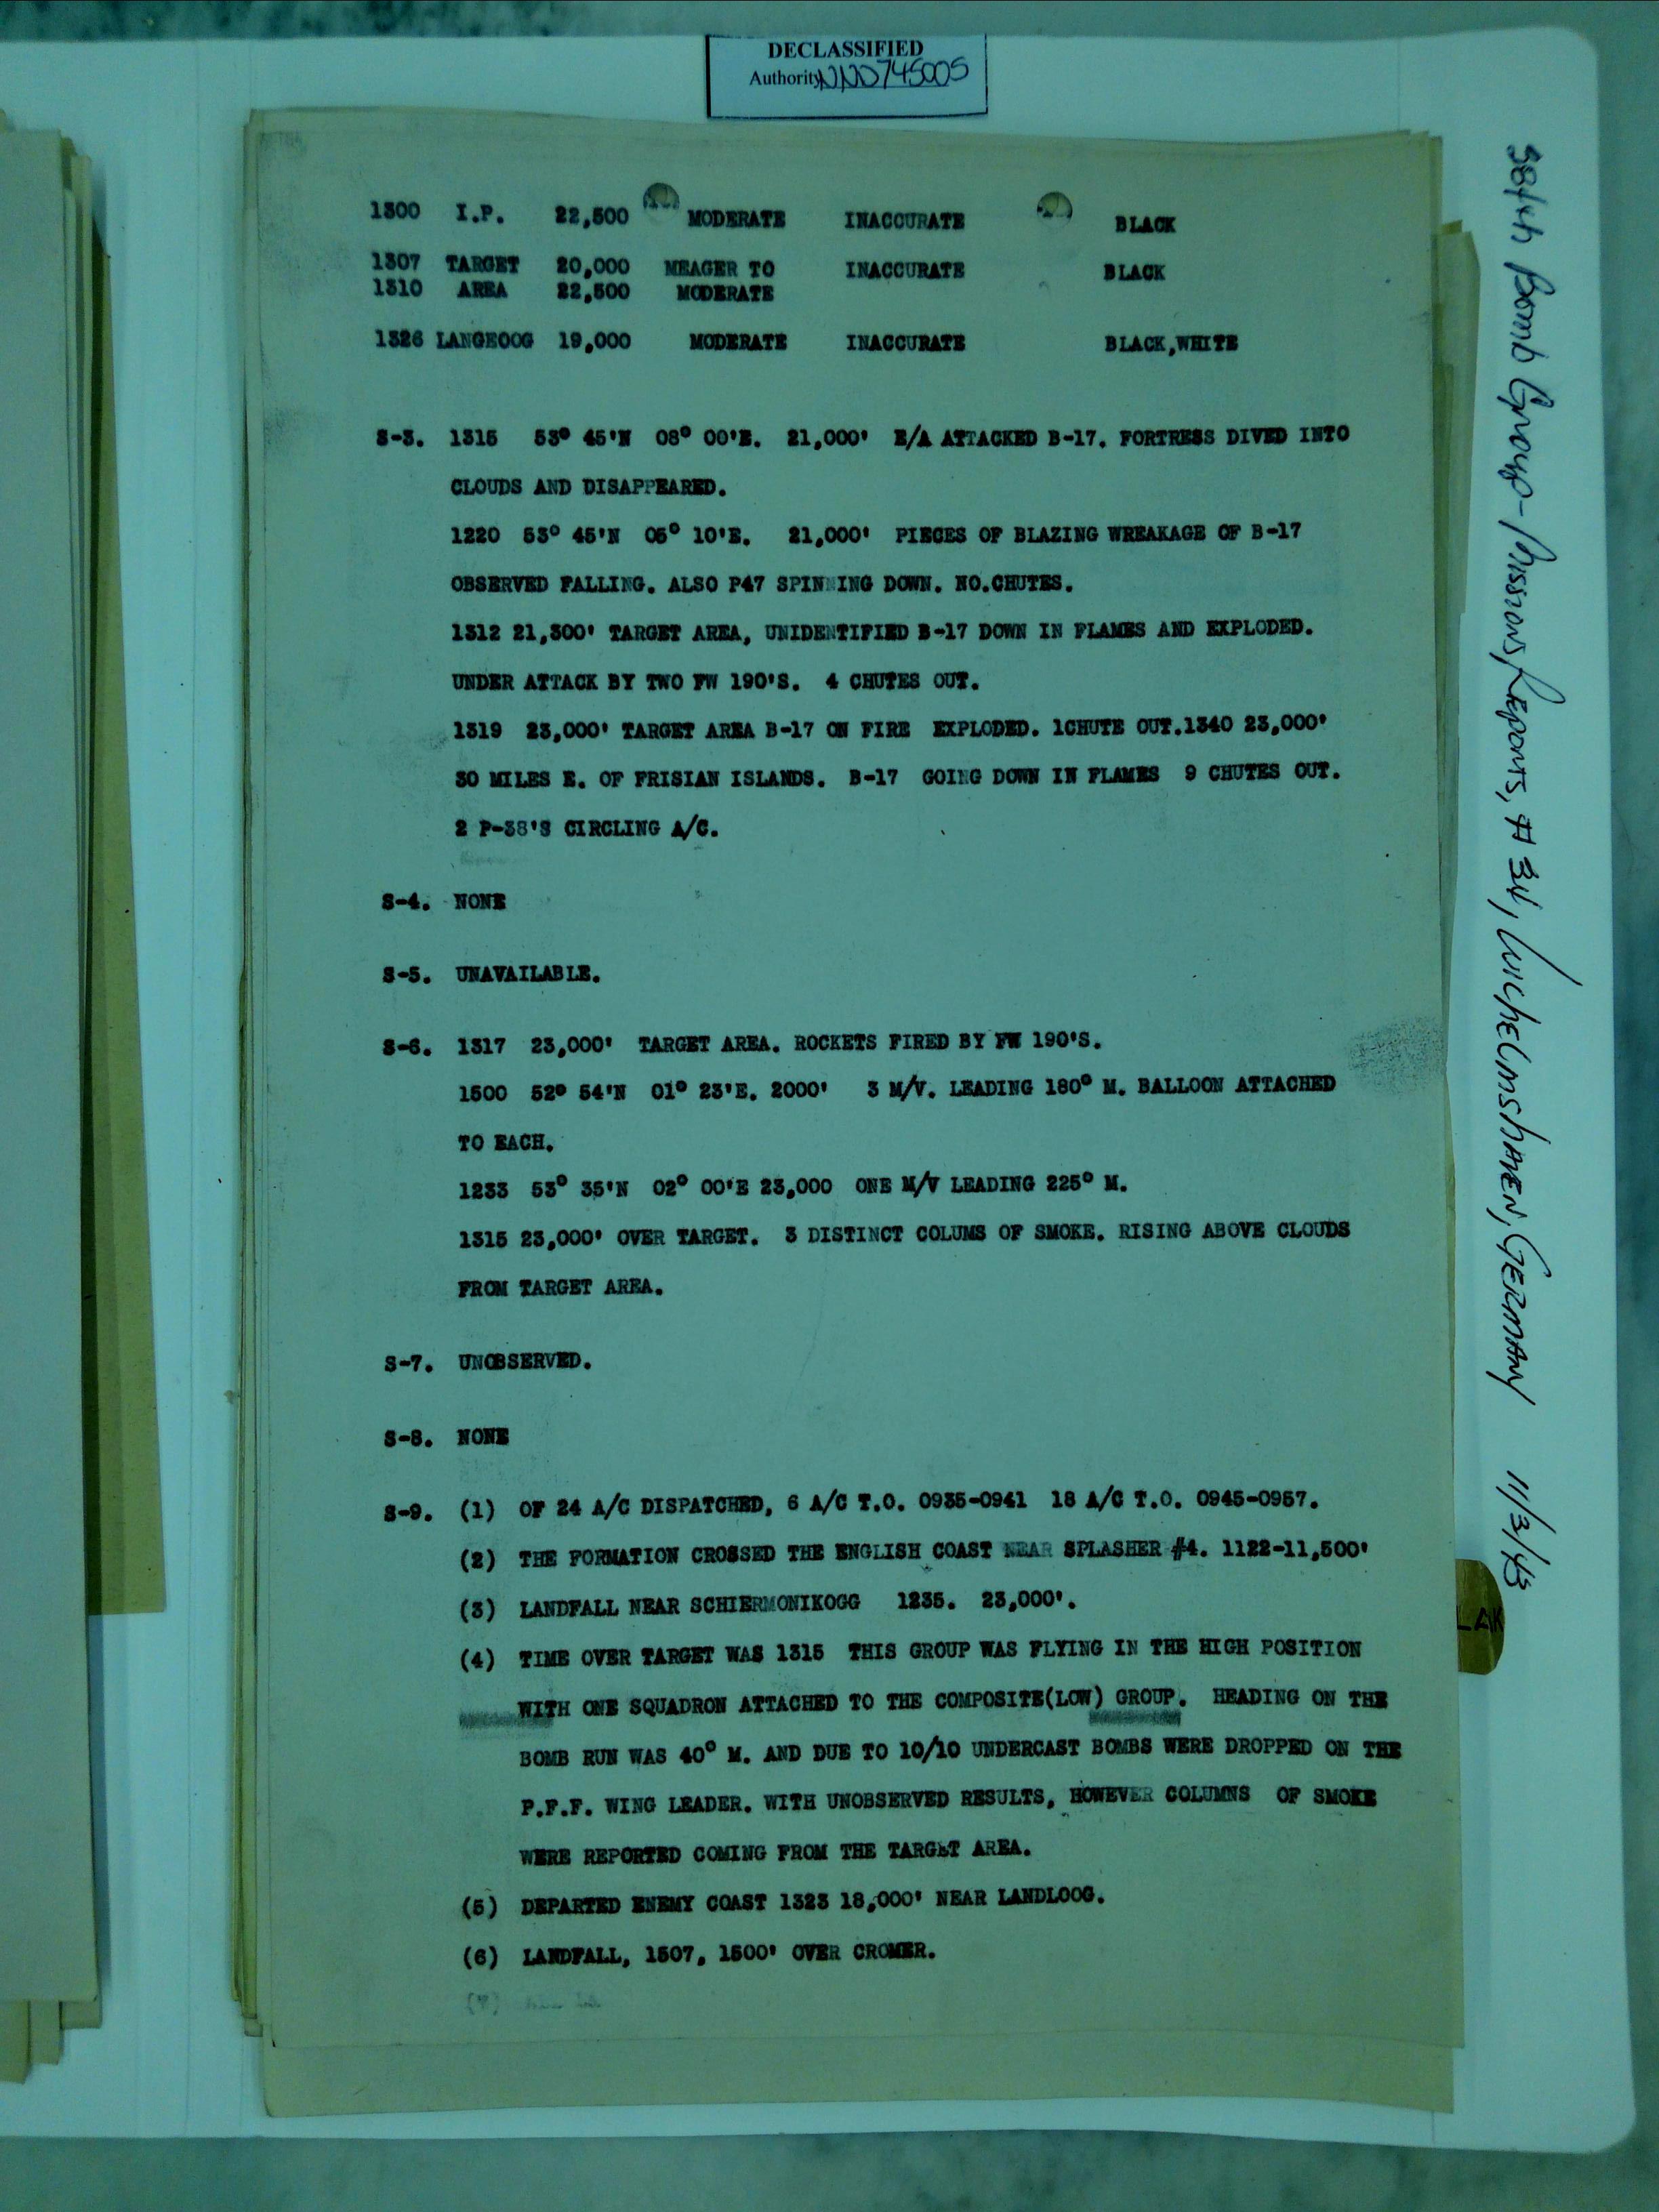 DECLASSIFIED
Authority NND745005
1300 I.P. 22,500 MODERATE INACCURATE BLACK
1307 TARGET 20,000 MEAGER TO INACCURATE BLACK
1310 AREA 22,500 MODERATE
1326 LANGEOOG 19,000 MODERATE INACCURATE BLACK,WHITE
S-3. 1315 53° 45'N 08° 00'E. 21,000' E/A ATTACKED B-17. FORTRESS DIVED INTO
CLOUDS AND DISAPPEARED.
1220 53° 45'N 05° 10'E. 21,000' PIECES OF BLAZING WREAKAGE OF B-17
OBSERVED FALLING. ALSO P47 SPINNING DOWN. NO.CHUTES.
1312 21,300' TARGET AREA, UNIDENTIFIED B-17 DOWN IN FLAMES AND EXPLODED.
UNDER ATTACK BY TWO FW 190'S. 4 CHUTES OUT.
1319 23,000' TARGET AREA B-17 ON FIRE EXPLODED. 1CHUTE OUT.1340 23,000'
30 MILES E. OF FRISIAN ISLANDS. B-17 GOING DOWN IN FLAMES 9 CHUTES OUT.
2 P-38'S CIRCLING A/C.
S-4. NONE
S-5. UNAVAILABLE.
S-6. 1317 23,000' TARGET AREA. ROCKETS FIRED BY FW 190'S.
1500 52° 54'N 01° 23'E. 2000' 3 M/V. LEADING 180° M. BALLOON ATTACHED
TO EACH.
1233 53° 35'N 02° 00'E 23,000 ONE M/V LEADING 225° M.
1315 23,000' OVER TARGET. 3 DISTINCT COLUMS OF SMOKE. RISING ABOVE CLOUDS
FROM TARGET AREA.
S-7. UNOBSERVED.
S-8. NONE
S-9. (1) OF 24 A/C DISPATCHED, 6 A/C T.O. 0935-0941 18 A/C T.O. 0945-0957.
(2) THE FORMATION CROSSED THE ENGLISH COAST NEAR SPLASHER #4. 1122-11,500'
(3) LANDFALL NEAR SCHIERMONIKOGG 1235. 23,000'.
(4) TIME OVER TARGET WAS 1315 THIS GROUP WAS FLYING IN THE HIGH POSITION
WITH ONE SQUADRON ATTACHED TO THE COMPOSITE(LOW) GROUP. HEADING ON THE
BOMB RUN WAS 40° M. AND DUE TO 10/10 UNDERCAST BOMBS WERE DROPPED ON THE
P.F.F. WING LEADER. WITH UNOBSERVED RESULTS, HOWEVER COLUMNS OF SMOKE
WERE REPORTED COMING FROM THE TARGET AREA.
(5) DEPARTED ENEMY COAST 1323 18,000' NEAR LANDLOOG.
(6) LANDFALL, 1507, 1500' OVER CROMER.
(7)
384th Bomb Group-Missions Reports, #34, Wilhelmshaven, Germany 11/3/43
LAK